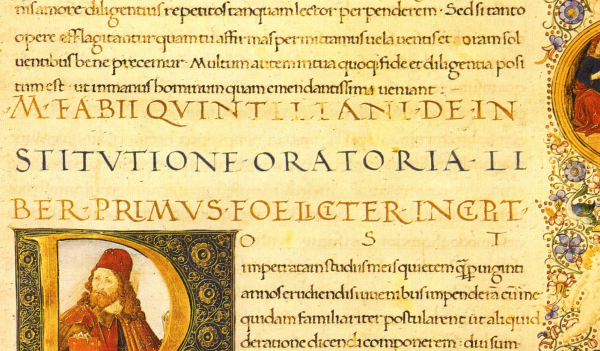 ris amore diligentius repetitos tanquam lector perpenderem · Sed si tanto
opere efflagitantur quam tu affirmas permittamus uela uentis et oram sol
uentibus bene precemur · Multum autem in tua quoq; fide et diligentia posi
tum est · ut in manus hominum quam emendantissimi ueniant :
·M·FABII QVINTILIANI·DE·IN
STITVTIONE·ORATORIA·LI
BER·PRIMVS·FOELICITER·INCIPIT·
P O S T
impetratam studiis meis quietem q̄ p uiginti
annos erudiendis iuuenibus impenderā cū me
quidam familiariter postularent ut aliquid
de ratione dicendi componerem : diu sum